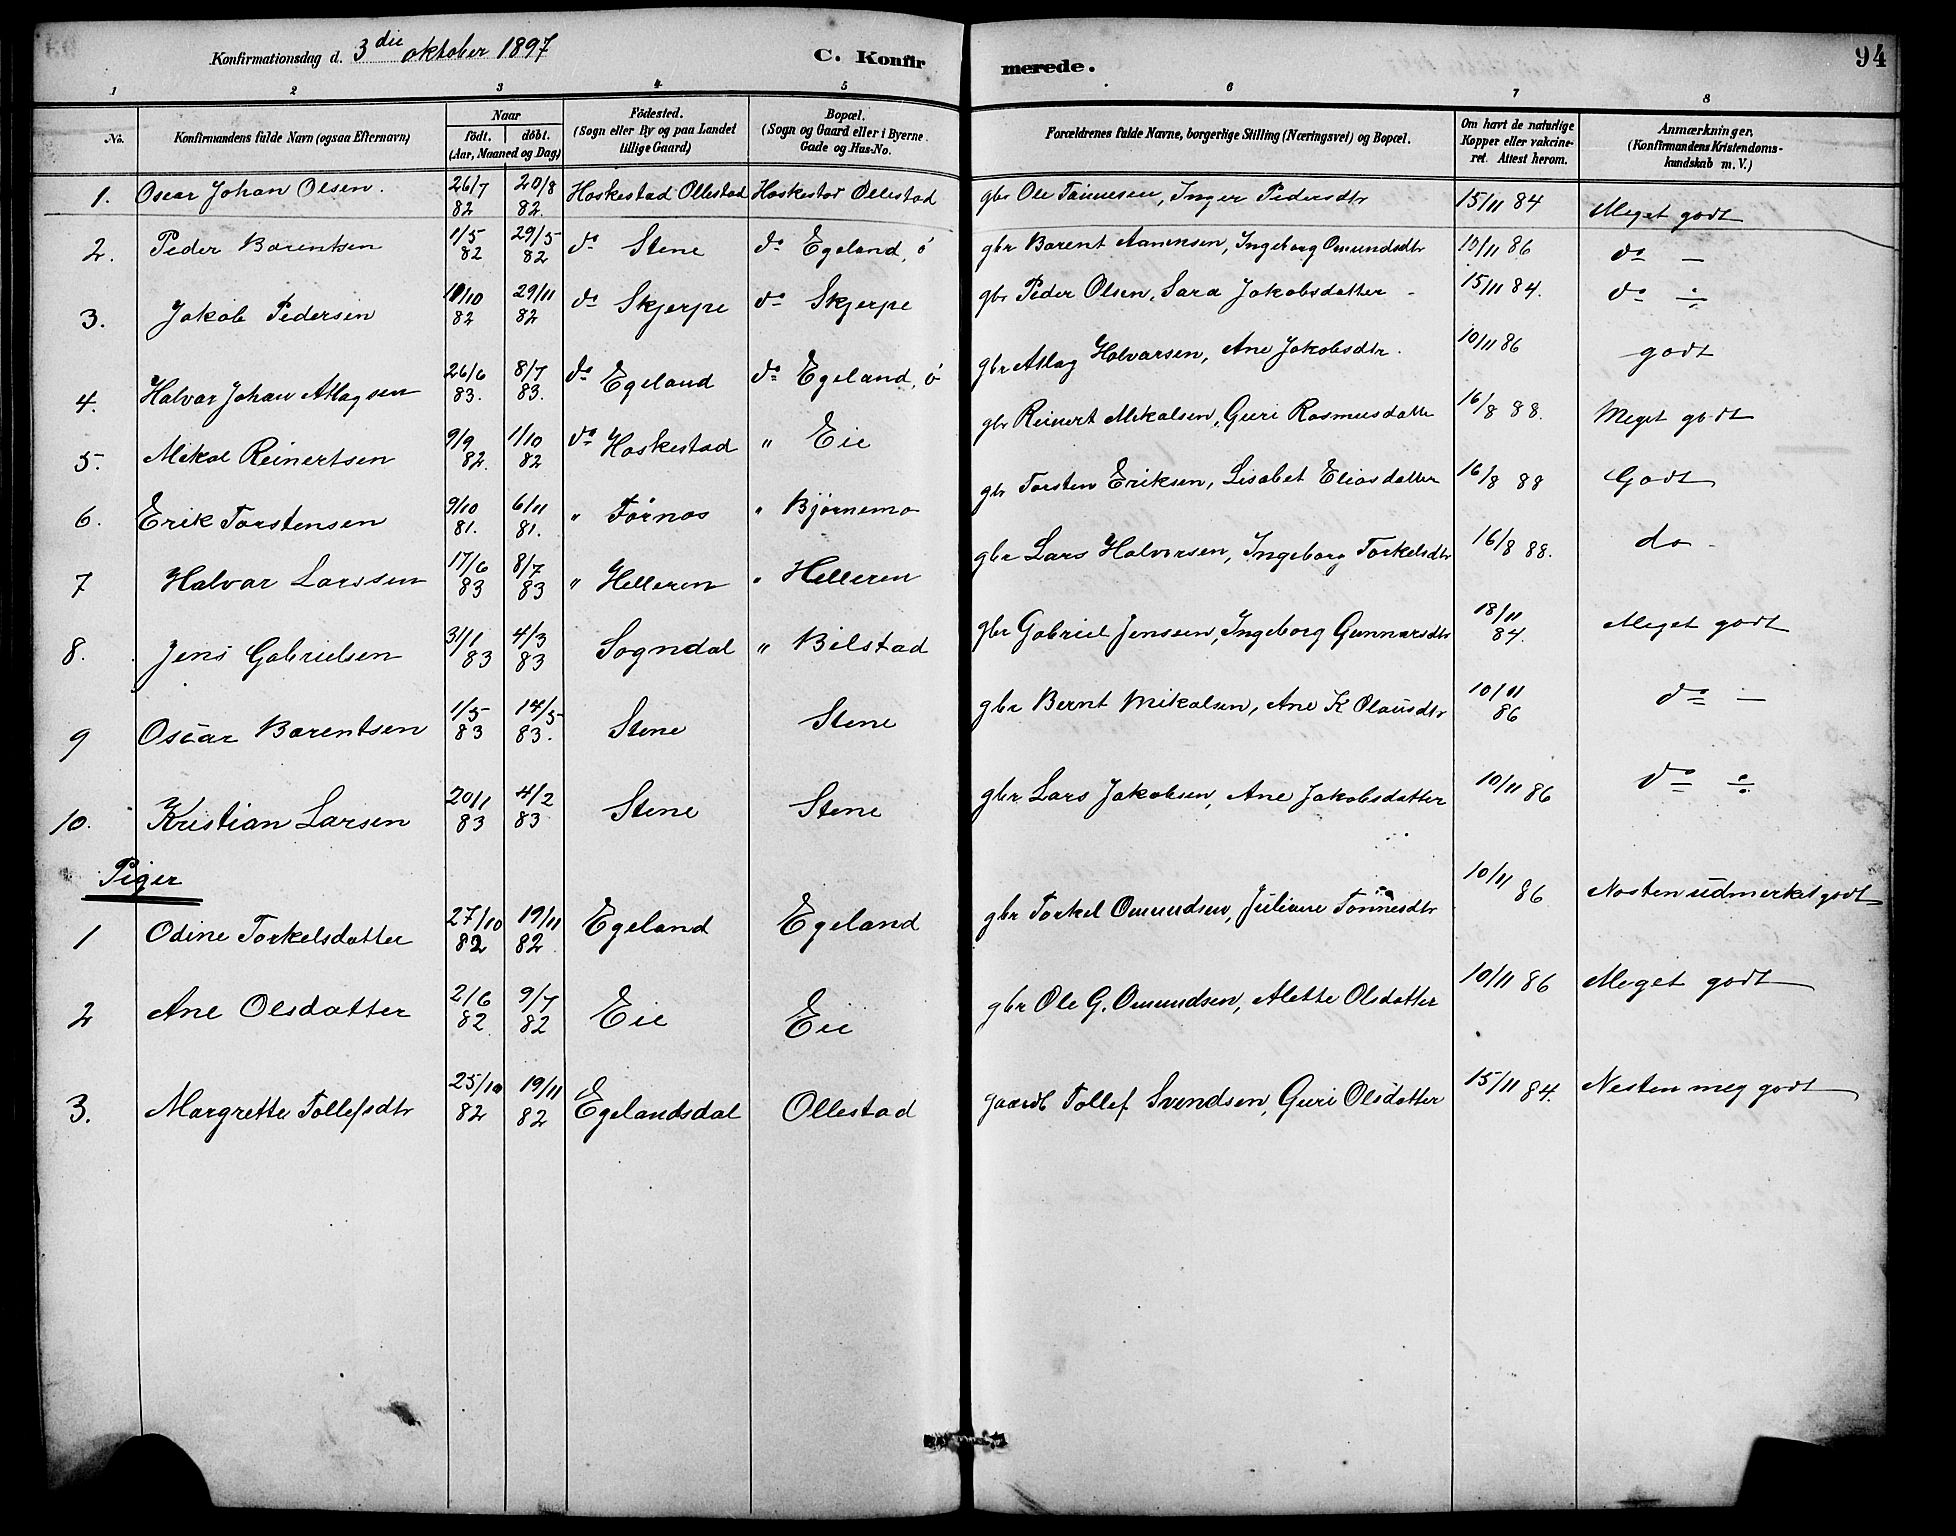 Konfirmationsdag d. 3die oktober 1897 C. Konfirmerede. 94
1 2 3 4 5 6 7 8
No. Konfirmandens fulde Navn (ogsaa Efternavn) Naar födt. döbt. (Aar, Maaned og Dag) Födested. (Sogn eller By og paa Landet tillige Gaard) Bopæl. (Sogn og Gaard eller i Byerne Gade og Hus-No. Forældrenes fulde Navne, borgerlige Stilling (Næringsvei) og Bopæl. Om havt de naturlige Kopper eller vakcineret. Attest herom. Anmærkninger. (Konfirmandens Kristendomskundskab m. V.)
1. Oscar Johan Olsen. 26/7 82 20/8 82. Hoskestad Ollestad Hoskestad Ollestad gbr Ole Tønnesen, Inger Pedersdtr 15/11 84 Meget godt
2. Peder Barentsen 1/5 82 29/5 82 do Stene do Egeland, ö gbr Barent Aanensen, Ingeborg Omundsdtr 10/11 86 do —
3. Jakob Pedersen 11/10 82 29/11 82 do Skjerpe do Skjerpe gbr Peder Olsen, Sara Jakobsdatter - 15/11 84. do ÷
4. Halvar Johan Atlagsen 26/6 83. 8/7 83. do Egeland do Egeland, ö gbr Atlag Halvarsen, Ane Jakobsdtr. 10/11 86 godt
5. Mikal Reinertsen 9/9 82. 1/10 82 do Hoskestad " Eie gbr Reinert Mikalsen, Guri Rasmusdatter 16/8 88. Meget godt
6. Erik Torstensen 9/10 81. 6/11 81. " Førnos " Bjørnemo gbr Torsten Eriksen, Lisabet Eliasdatter 16/8 88 Godt
7 Halvar Larssen 17/6 83 8/7 83 " Helleren " Helleren gbr Lars Halvorsen, Ingeborg Torkelsdtr 16/8 88. do -
8. Jens Gabrielsen 31/1 83 4/3 83 Sogndal " Bilstad gbr Gabriel Jenssen, Ingeborg Gunnarsdtr 18/11 84. Meget godt
9 Oscar Barentsen 1/5 83 14/5 83. Stene Stene gbr Bernt Mikalsen, Ane K Olausdtr 10/11 86 do —
10. Kristian Larsen 20/1 83 4/2 83 Stene Stene gbr Lars Jakobsen, Ane Jakobsdatter 10/11 86 do ÷
Piger
1 Odine Torkelsdatter 27/10 82 19/11 82. Egeland Egeland gbr Torkel Omundsen, Juliane Tønnesdtr 10/11 86 Nesten udmerket godt
2 Ane Olsdatter 2/6 82. 9/7 82 Eie Eie gbr Ole G. Omundsen, Alette Olsdatter 10/11 86 Meget godt
3. Margrette Tollefsdtr 25/10 82 19/11 82 Egelandsdal Ollestad gaardb Tollef Svendsen, Guri Olsdatter 15/11 84. Nesten meg godt